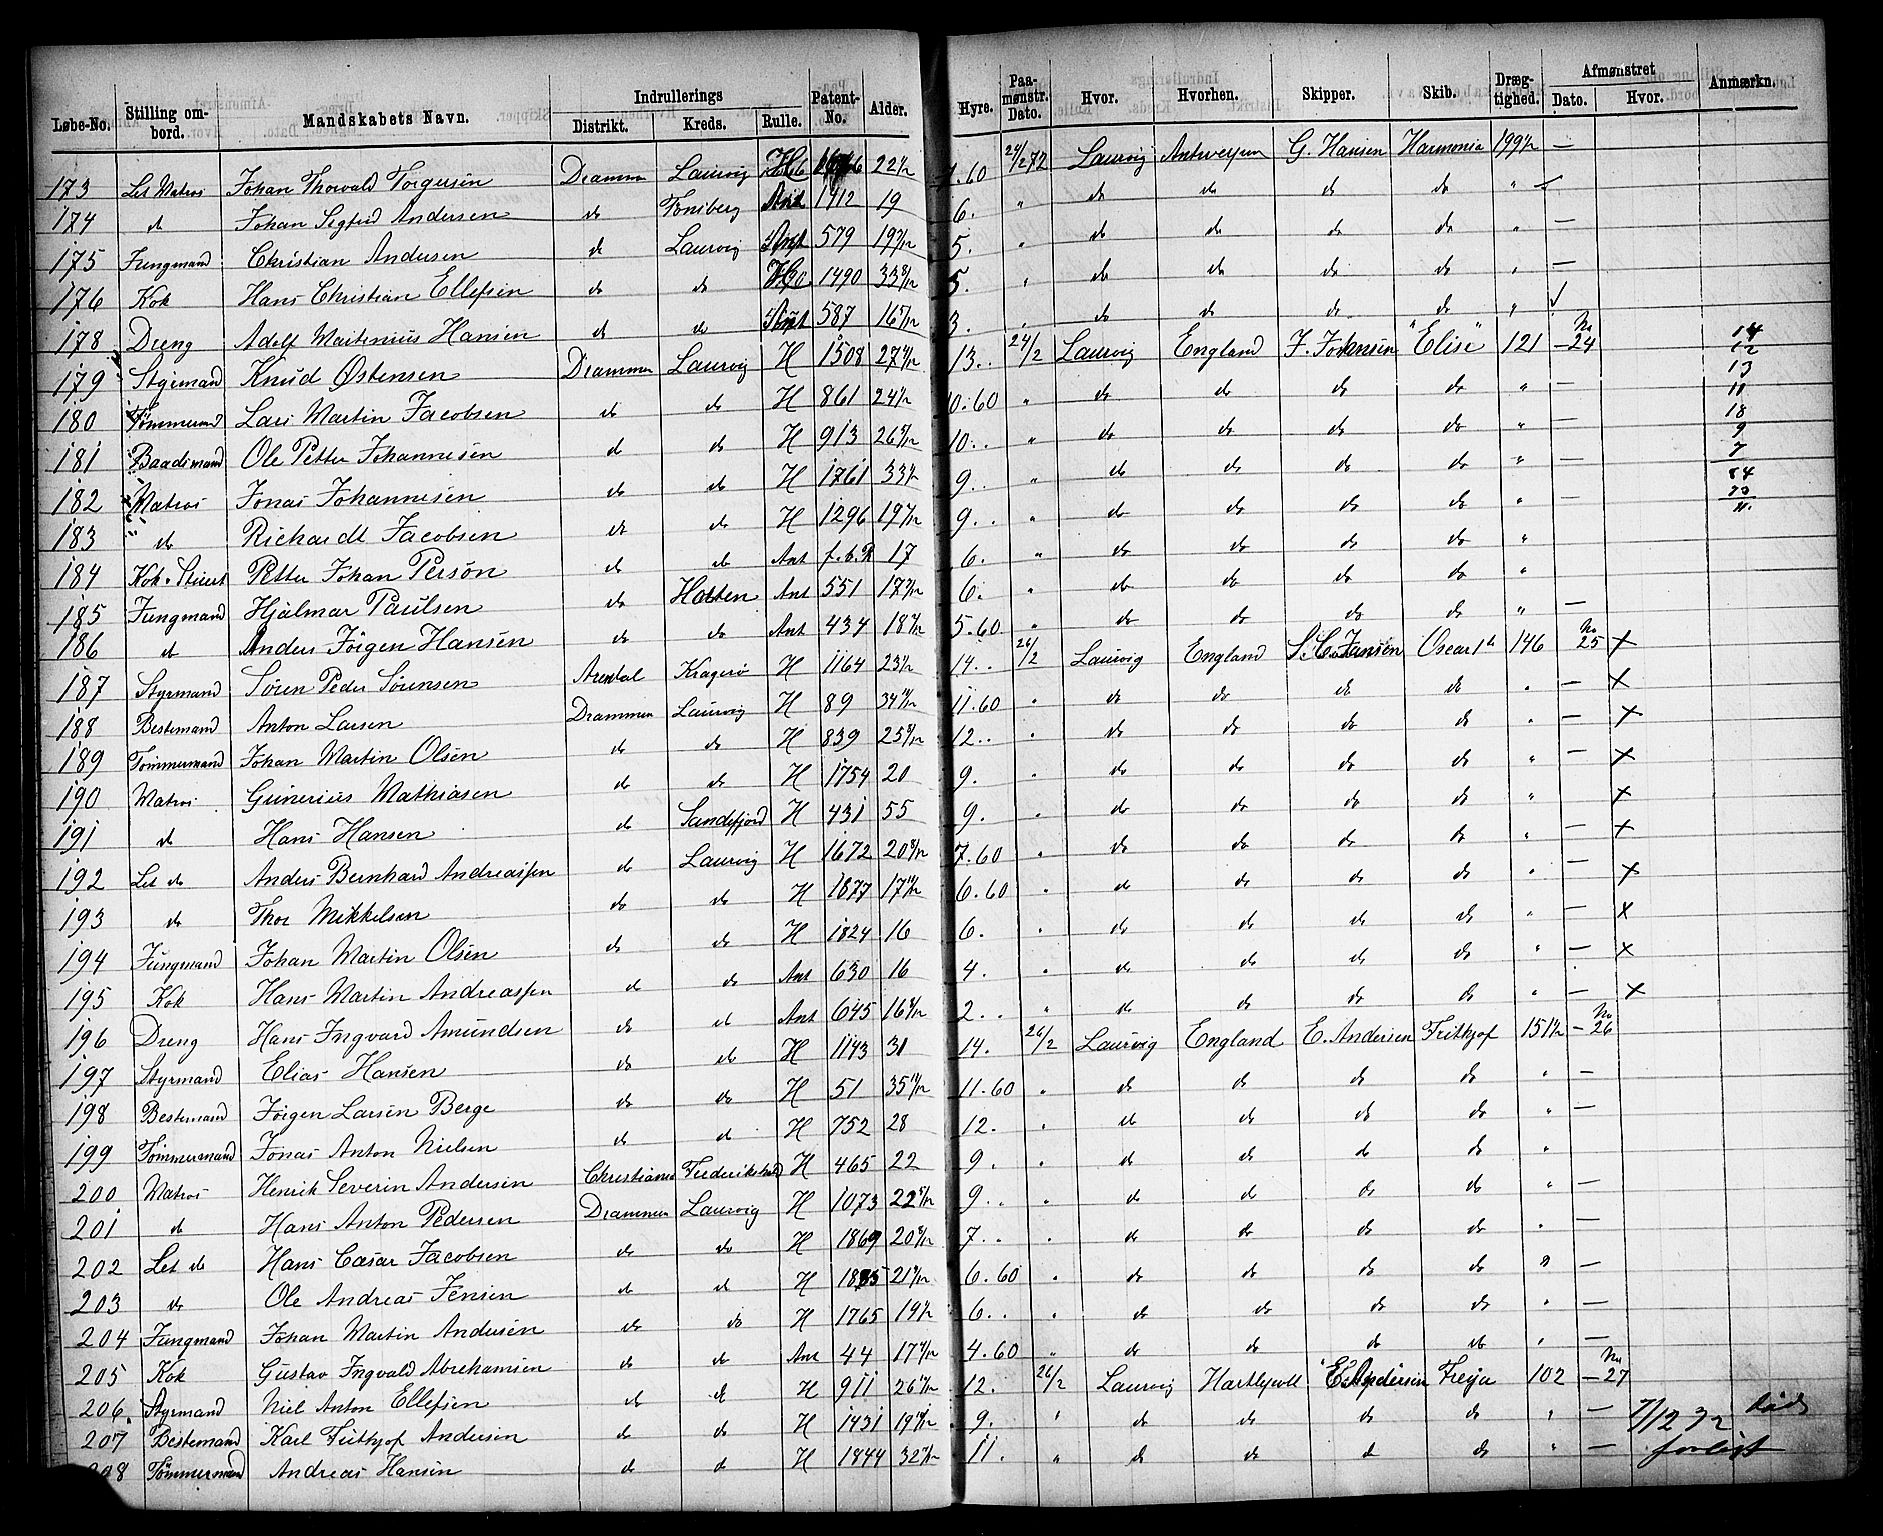 Løbe-No. Stilling ombord. Mandskabets Navn. Indrullerings Distrikt. Kreds. Rulle. Patent-No. Alder. Hyre. Paamønstr. Dato. Hvor. Hvorhen. Skipper. Skib. Drægtighed. Afmønstret Dato. Hvor. Anmærkn.
173 Let Matros Johan Thorvald Torgersen Drammen Laurvig 22 7.60 24/2 72 Laurvig Antwerpen G. Hansen Harmonia 199½ —
174 do Johan Sigfrid Andersen do Tønsberg Ant 1412 19 6. " do do do do "
175 Jungmand Christian Andersen do Laurvig Ant 579 5. " do do do do " —
176 Kok Hans Christian Ellefsen do do 1490 5. " do do do do " —
178 Dreng Adolf Martenius Hansen do do 587 3. " do do do do " ✓
179 Styrmand Knud Østensen Drammen Laurvig H 1508 13.. 24/2 Laurvig England J. Johnsen "Elise" 121 — No 24
180 Tømmermand Lars Martin Jacobsen do do H 861 10.60 " do do do do " —
181 Baadsmand Ole Petter Johannesen do do H 913 10.. " do do do do " —
182 Matros Jonas Johannesen do do H 1761 9.. " do do do do " —
183 do Richardt Jacobsen do do H 1296 9.. " do do do do " —
184 Kok & Stuert Petter Johan Person do do Ant f.b.R 17 6. " do do do do "
185 Jungmand Hjalmar Paulsen do Holten Ant 551 6. " do do do do "
186 do Anders Jörgen Hansen do do Ant 434 5.60 " do do do do " —
187 Styrmand Sören Peder Sörensen Arendal Kragerö H 1164 14.. 26/2 Laurvig England S. C. Jansen Oscar 1st 146 No 25 X
188 Bestemand Anton Larsen Drammen Laurvig H 89 11.60 " do do do do " — X
189 Tömmermand Johan Martin Olsen do do H 839 12.. " do do do do " — X
190 Matros Gunerius Mathiasen do do H 1754 20 9. " do do do do " — X
191 do Hans Hansen do Sandefjord H 431 55 9. " do do do do " — X
192 Let do Anders Bernhard Andreassen do Laurvig H 1672 7.60 " do do do do " — X
193 do Thor Mikkelsen do do H 1877 6.60 " do do do do " — X
194 Jungmand Johan Martin Olsen do do H 1824 16 6. " do do do do " — X
195 Kok Hans Martin Andreassen do do Ant 630 16 4. " do do do do " — X
196 Dreng Hans Ingvard Amundsen do do Ant 645 2.. " do do do do " — X
197 Styrmand Elias Hansen do do H 1143 31 14. 26/2 Laurvig England E. Andersen Frithjof 151½ — No 26
198 Bestemand Jörgen Larsen Berge do do H 51 11.60 " do do do do " —
199 Tömmermand Jonas Anton Nielsen do do H 752 28 12. " do do do do " —
200 Matros Henrik Severin Andersen Christiania Frederikshald H 465 22 9. " do do do do "
201 do Hans Anton Pedersen Drammen Laurvig H 1073 9.. " do do do do " —
202 Let do Hans Cæsar Jacobsen do do H 1869 7.. " do do do do " —
203 do Ole Andreas Jensen do do H 6.60 " do do do do " —
204 Jungmand Johan Martin Andersen do do H 1765 6.. " do do do do " —
205 Kok Gustav Ingvald Abrehamsen do do Ant 44 4.60 " do do do do " —
206. Styrmand Niel Anton Ellefsen do do H 911 12. 26/2 Laurvig Hartlepoll E. Andersen Freija 102 — No 27
207 Bestemand Karl Frithjof Andersen do do H 1431 9. " do do do do " —
208 Tömmermand Andreas Hansen do do H 1844 11. " do do do do " — forligt